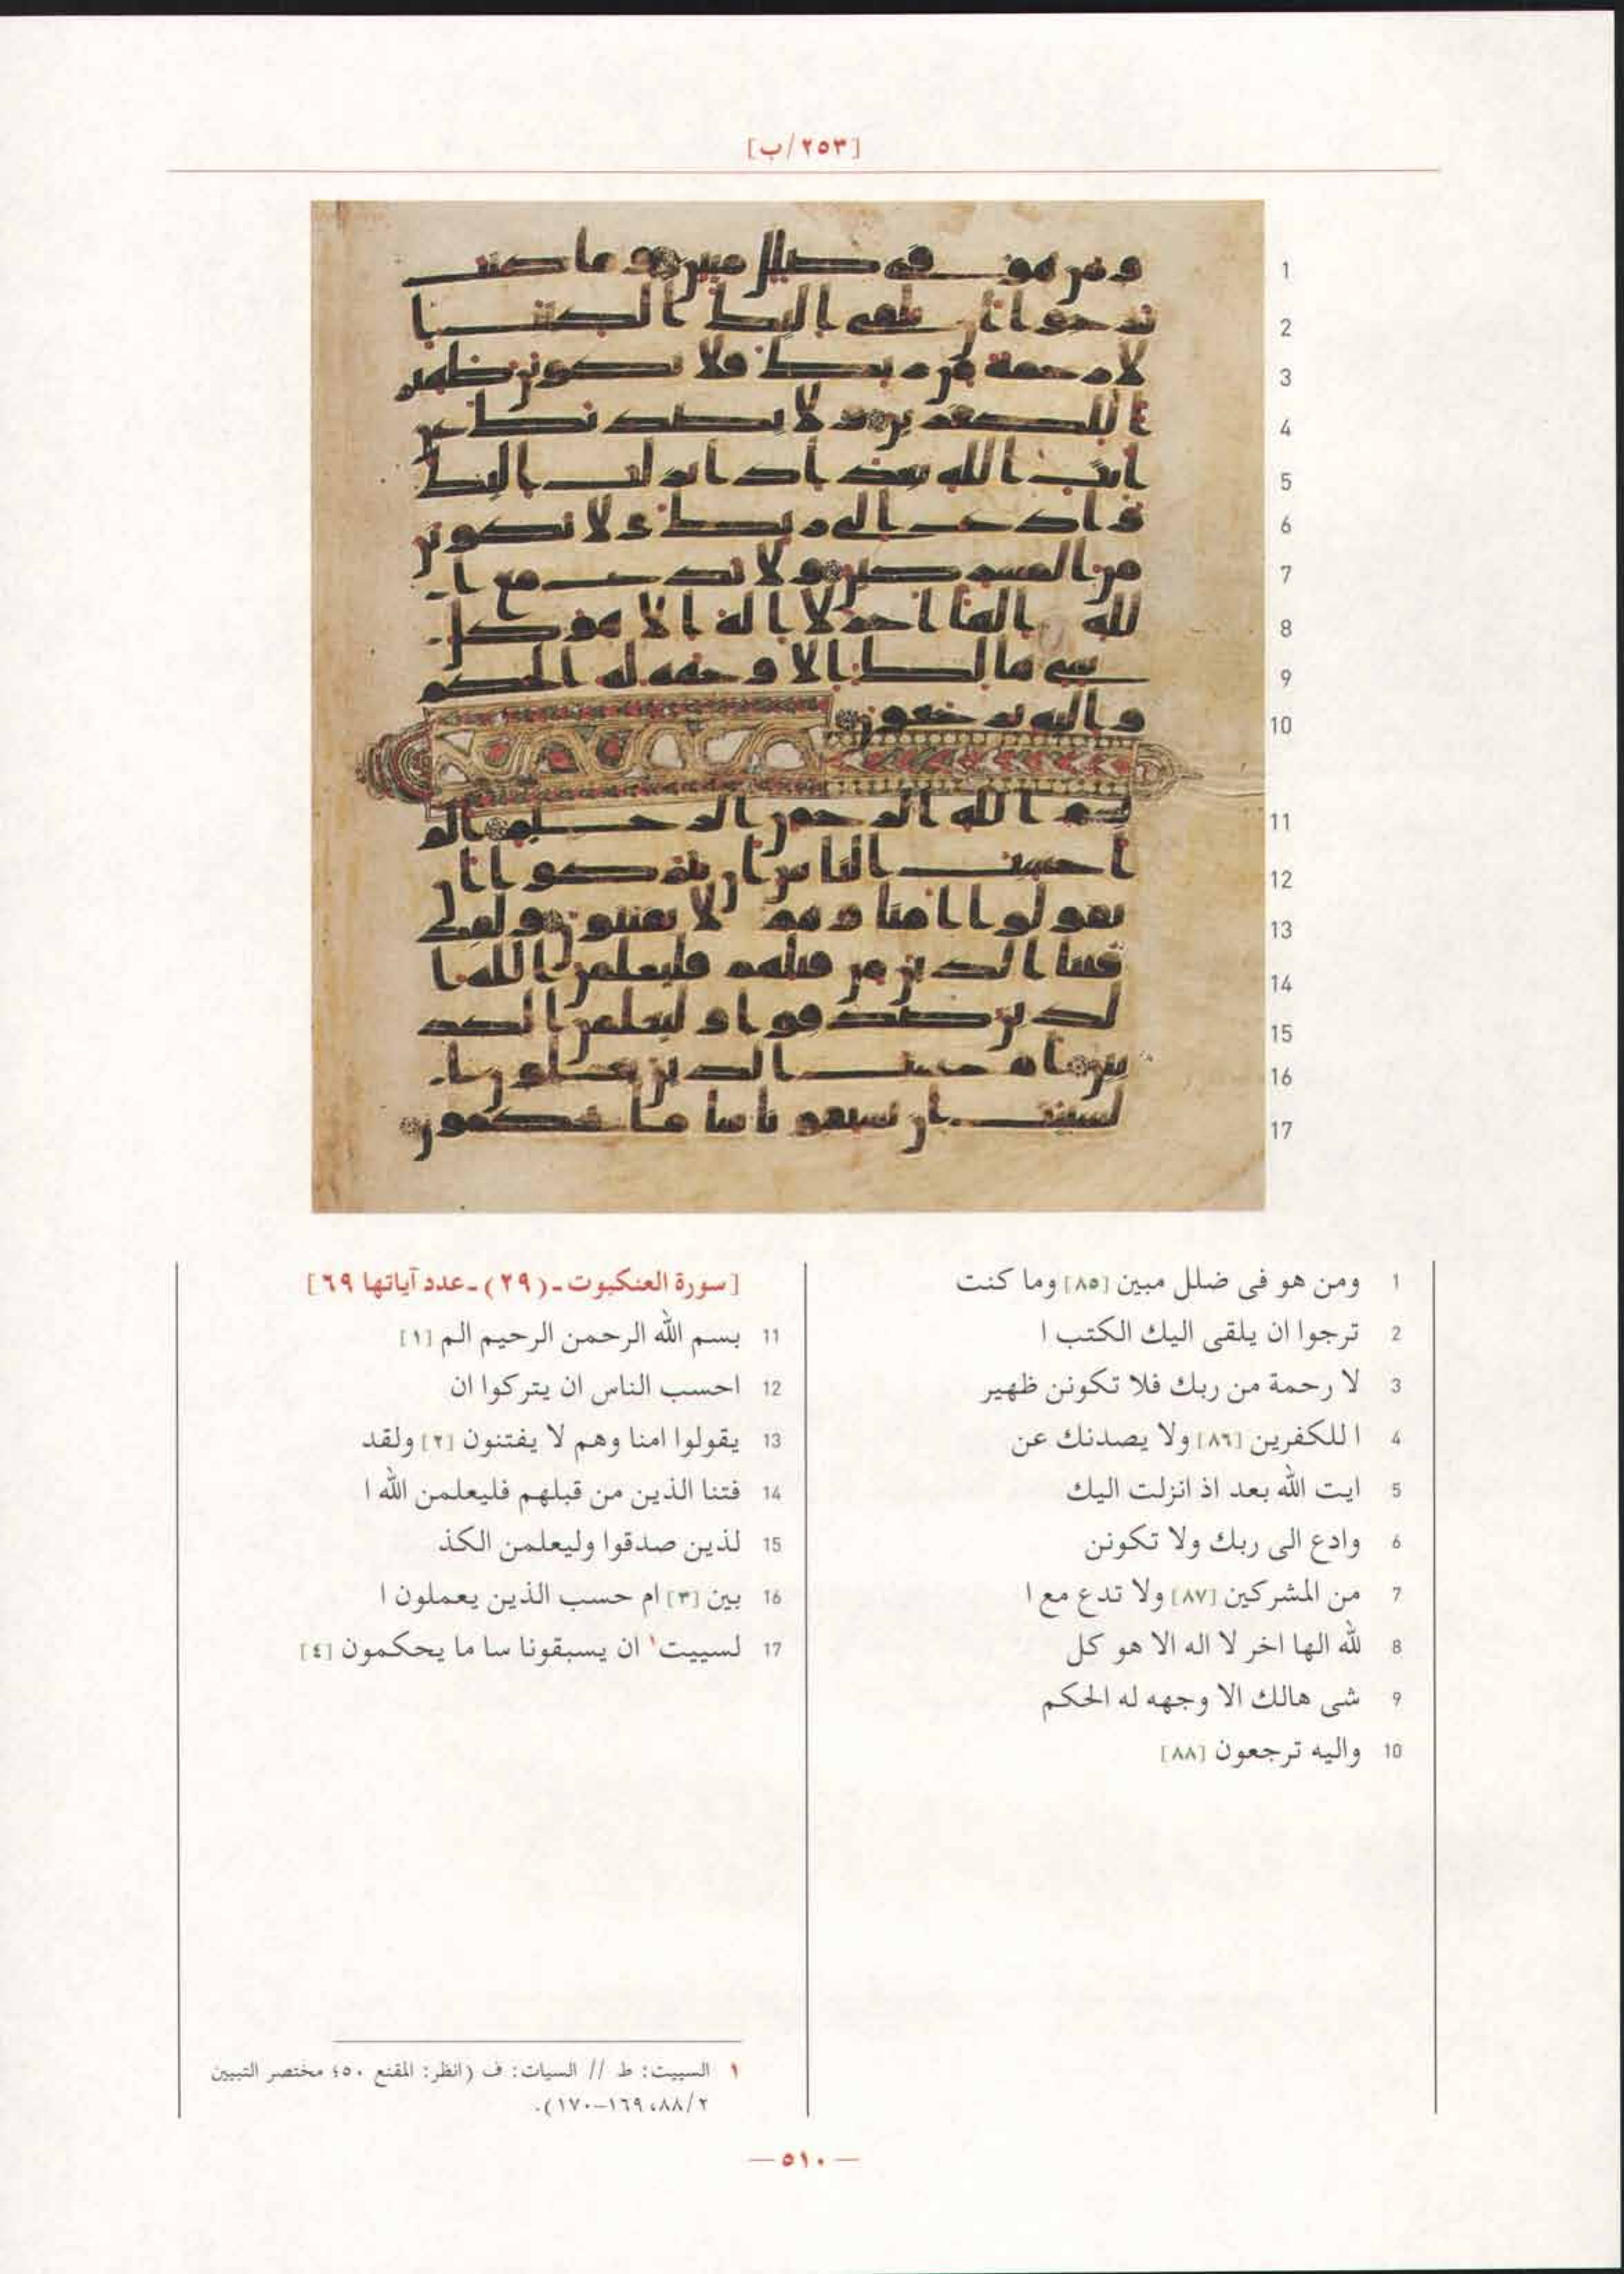 [٢٥٣/ب]
1
2
3
4
5
6
7
8
9
10
11
12
13
14
15
16
17
1 ومن هو فى ضلل مبين [٨٥] وما كنت
2 ترجوا ان يلقى اليك الكتب ا
3 لا رحمة من ربك فلا تكونن ظهير
4 ا للكفرين [٨٦] ولا يصدنك عن
5 ايت الله بعد اذ انزلت اليك
6 وادع الى ربك ولا تكونن
7 من المشركين [٨٧] ولا تدع مع ا
8 لله الها اخر لا اله الا هو كل
9 شى هالك الا وجهه له الحكم
10 واليه ترجعون [٨٨]
[سورة العنكبوت ـ (٢٩) ـ عدد آياتها ٦٩]
11 بسم الله الرحمن الرحيم الم [١]
12 احسب الناس ان يتركوا ان
13 يقولوا امنا وهم لا يفتنون [٢] ولقد
14 فتنا الذين من قبلهم فليعلمن الله ا
15 لذين صدقوا وليعلمن الكذ
16 بين [٣] ام حسب الذين يعملون ا
17 لسييت١ ان يسبقونا سا ما يحكمون [٤]
١ السييت: ط // السيات: ف (انظر: المقنع ٥٠؛ مختصر التبيين
٢/٨٨، ١٦٩-١٧٠).
— ٥١٠ —